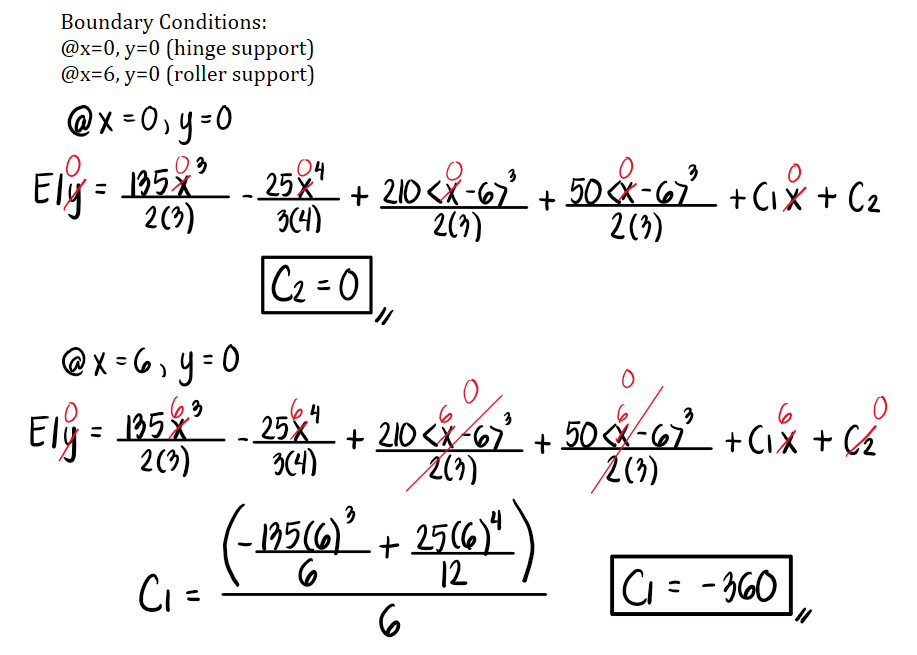 Boundary Conditions:
@x=0, y=0 (hinge support)
@x=6, y=0 (roller support)
@ x = 0, y = 0
EIy⁰ = 135x⁰³/2(3) - 25x⁰⁴/3(4) + 210<x⁰-6>³/2(3) + 50<x⁰-6>³/2(3) + C1x⁰ + C2
C2 = 0 //
@ x = 6, y = 0
EIy⁰ = 135x⁶³/2(3) - 25x⁶⁴/3(4) + 210<x⁶-6>³/2(3) ⁰ + 50<x⁶-6>³/2(3) ⁰ + C1x⁶ + C2⁰
C1 = (-135(6)³/6 + 25(6)⁴/12)/6
C1 = -360 //